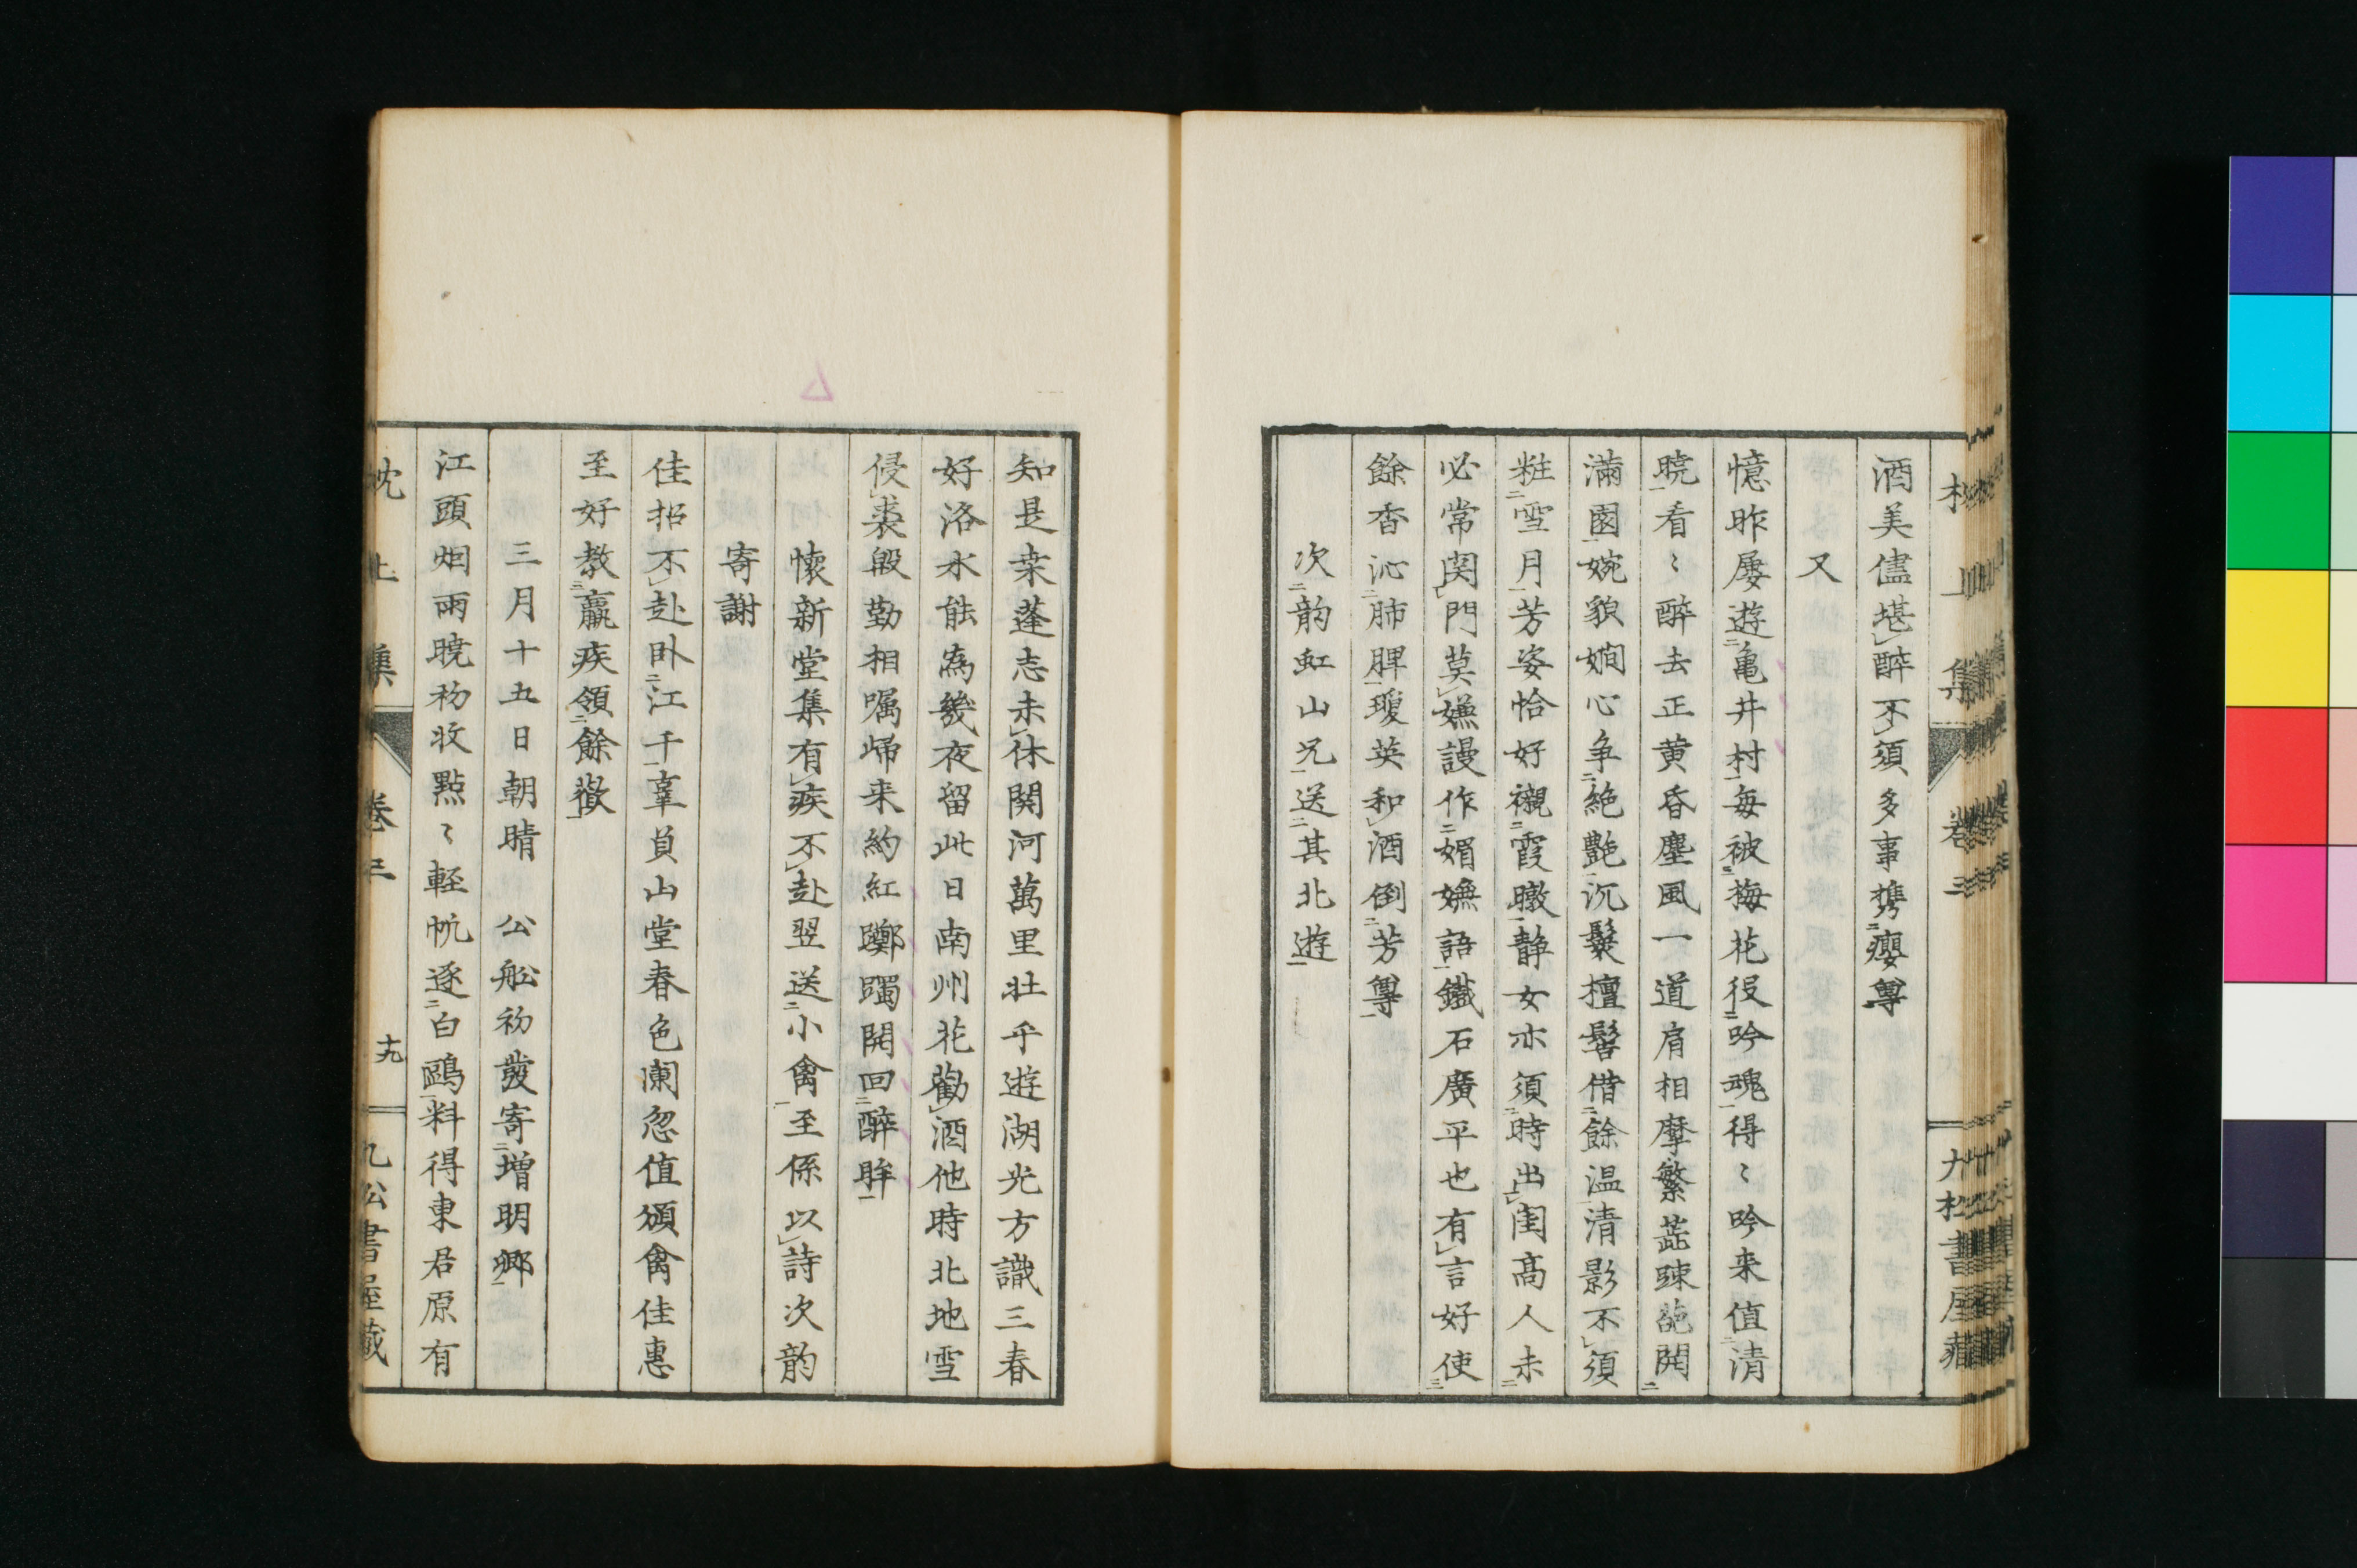 酒美儘堪醉不須多事携癭尊
又
憶昨屡遊亀井村毎被梅花役吟魂得〻吟来値清
暁看〻醉去正黄昏塵風一道肩相摩繁蕋踈葩開
満園婉貌嫺心争絶艶沉鬟檀髻借餘温清影不須
粧雪月芳姿恰好襯霞暾静女亦須時出閨高人未
必常関門莫嫌謾作媚嫵語鐵石廣平也有言好使
餘香沁肺脾瓊英和酒倒芳尊
次韵虹山兄送其北遊
知是桒蓬志未休関河萬里壮乎遊湖光方識三春
好洛水能為幾夜留此日南州花勸酒他時北地雪
侵裘殷勤相嘱帰来約紅躑躅開回醉眸
懐新堂集有疾不赴翌送小禽至係以詩次韵
寄謝
佳招不赴卧江干辜負山堂春色闌忽値頒禽佳惠
至好教羸疾領餘歡
三月十五日朝晴　公船初發寄増明郷
江頭烟雨暁初收點〻軽帆逐白鷗料得東君原有
枕上集　巻三　十九　九公書屋蔵